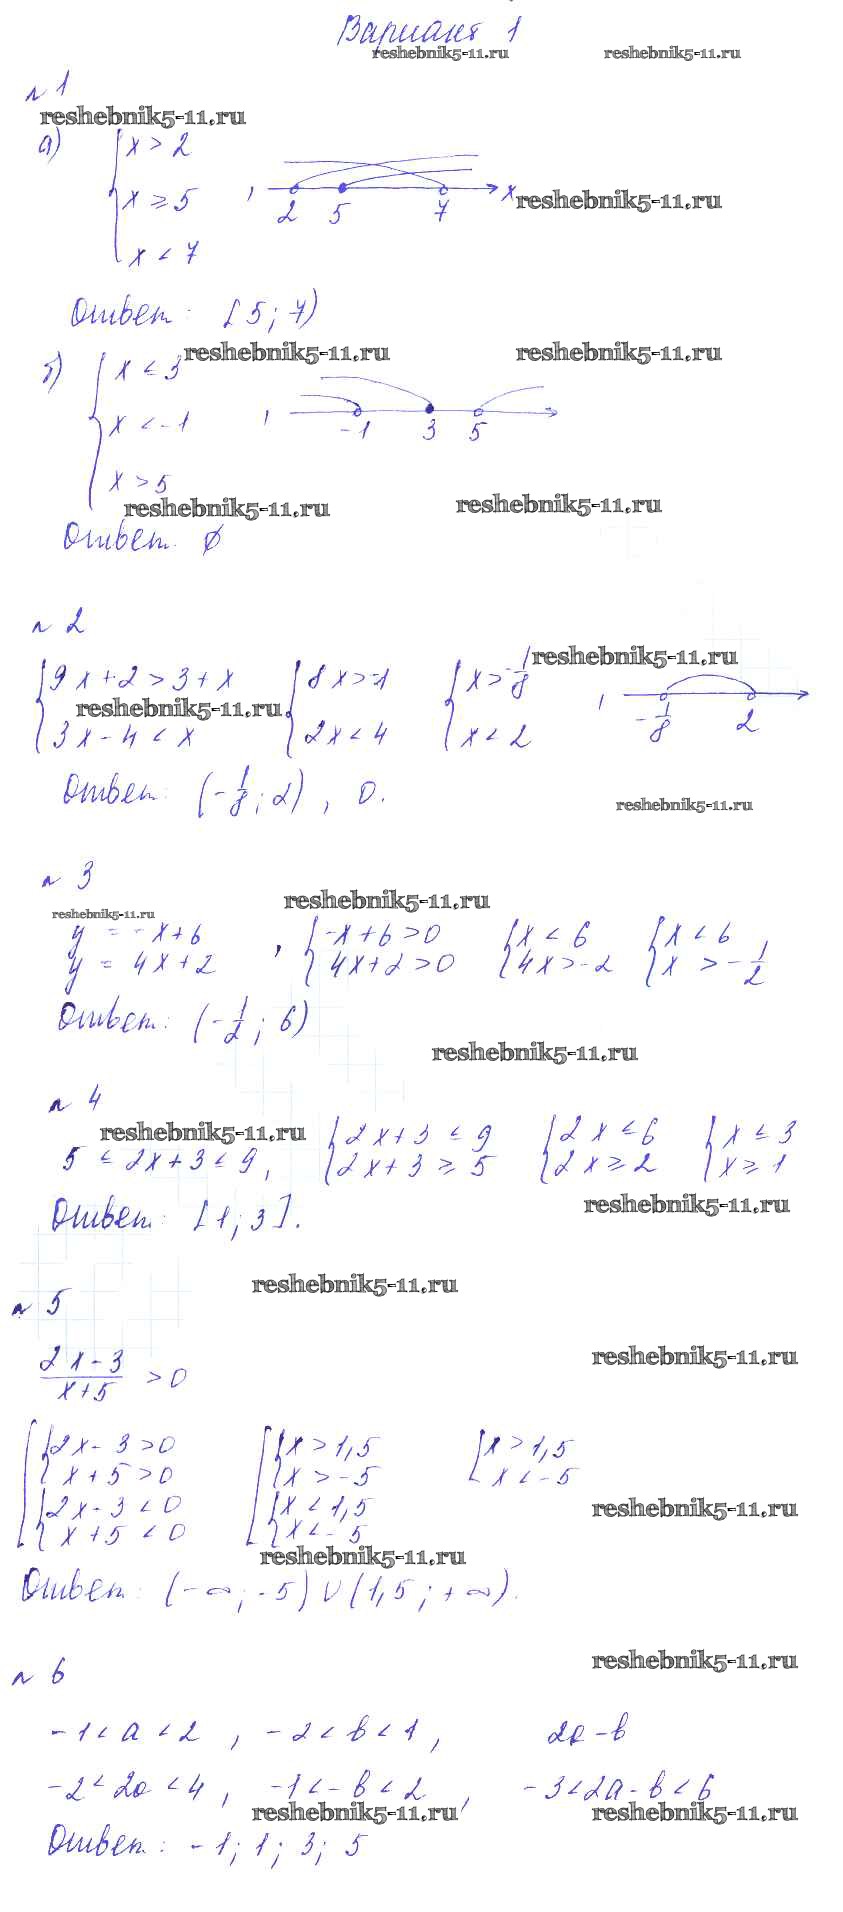 Вариант 1
reshebnik5-11.ru reshebnik5-11.ru
№ 1
reshebnik5-11.ru
а) { x > 2
x ≥ 5 , 2 5 7 x reshebnik5-11.ru
x < 7
Ответ: [5; 7)
reshebnik5-11.ru reshebnik5-11.ru
б) { x ≤ 3
x < -1 , -1 3 5
x > 5
reshebnik5-11.ru reshebnik5-11.ru
Ответ: ∅
№ 2
reshebnik5-11.ru
{ 9x + 2 > 3 + x { 8x > -1 { x > -1/8
reshebnik5-11.ru , -1/8 2
3x - 4 < x 2x < 4 x < 2
Ответ: (-1/8; 2), 0.
reshebnik5-11.ru
№ 3
reshebnik5-11.ru
reshebnik5-11.ru
y = -x + 6 , { -x + 6 > 0 { x < 6 { x < 6
y = 4x + 2 4x + 2 > 0 4x > -2 x > -1/2
Ответ: (-1/2; 6)
reshebnik5-11.ru
№ 4
reshebnik5-11.ru
{ 2x + 3 ≤ 9 { 2x ≤ 6 { x ≤ 3
5 ≤ 2x + 3 ≤ 9, 2x + 3 ≥ 5 2x ≥ 2 x ≥ 1
reshebnik5-11.ru
Ответ: [1; 3].
reshebnik5-11.ru
№ 5
reshebnik5-11.ru
(2x - 3)/(x + 5) > 0
[ { 2x - 3 > 0 [ { x > 1,5 [ x > 1,5
x + 5 > 0 x > -5 x < -5
{ 2x - 3 < 0 { x < 1,5
reshebnik5-11.ru
x + 5 < 0 x < -5
reshebnik5-11.ru
Ответ: (-∞; -5) ∪ (1,5; +∞).
reshebnik5-11.ru
№ 6
-1 < a < 2, -2 < b < 1, 2a - b
-2 < 2a < 4, -1 < -b < 2, -3 < 2a - b < 6
reshebnik5-11.ru reshebnik5-11.ru
Ответ: -1; 1; 3; 5